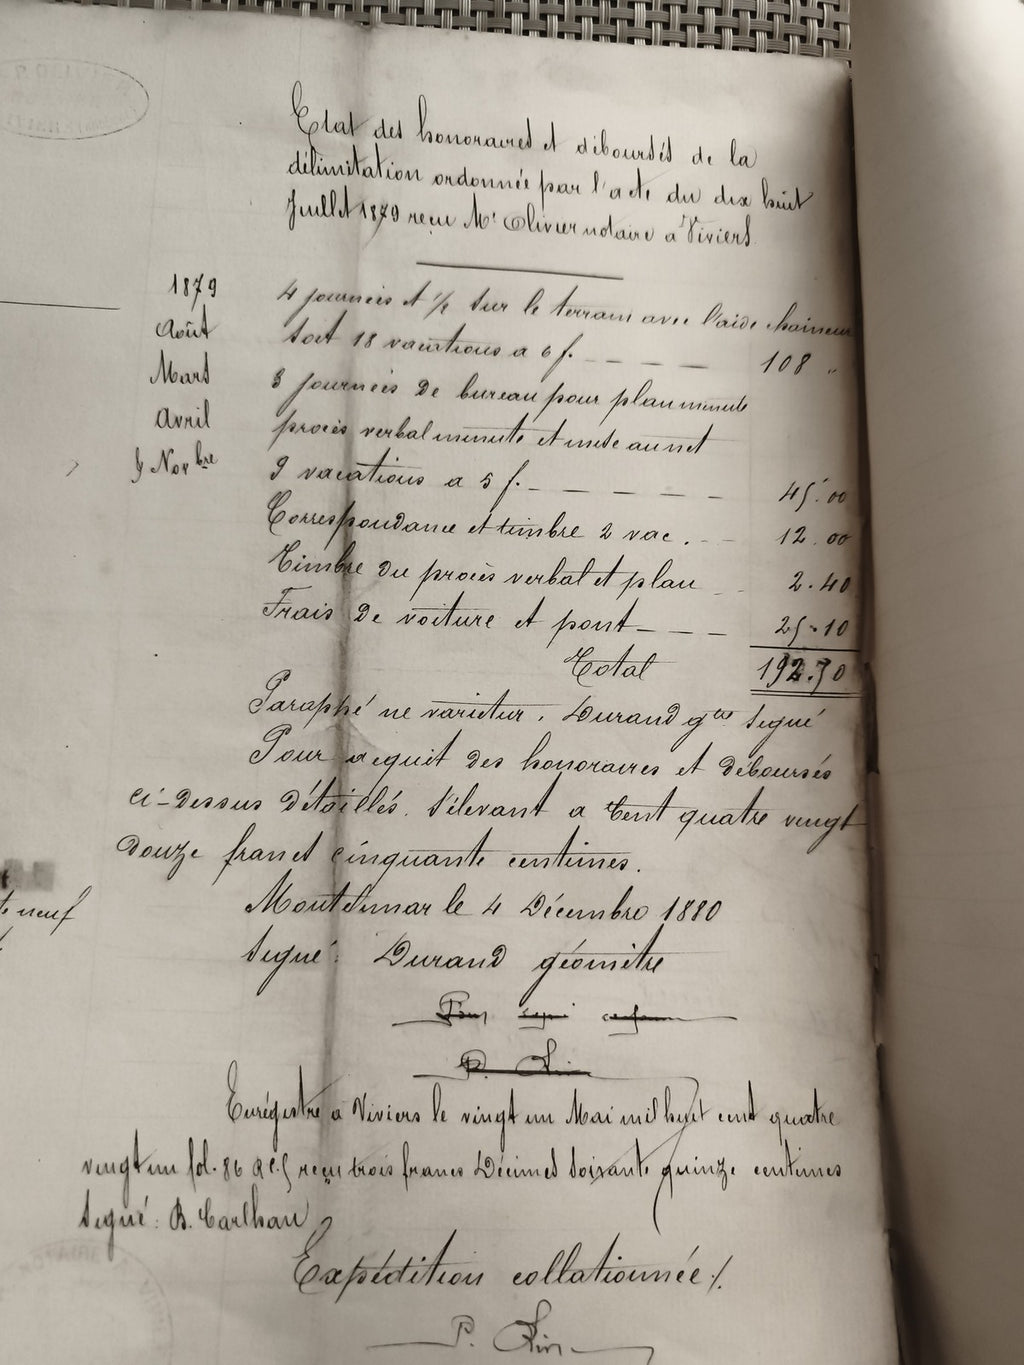 Etat des honoraires et déboursés de la
délimitation ordonnée par l'acte du dix huit
Juillet 1879 reçu Me Olivier notaire à Viviers
1879
4 journées et 1/2 sur le terrain avec l'aide chaineur
Août
soit 18 vacations a 6 f. 108 "
Mars
3 journées de bureau pour plan minute
Avril
procès verbal minute et mise au net
9 Novbre
9 vacations a 5 f. 45.00
Correspondance et timbre 2 vac. 12.00
Timbre du procès verbal et plan 2.40
Frais de voiture et pont 25.10
Total 192.50
Paraphé ne varietur. Durand gtre signé
Pour acquit des honoraires et déboursés
ci-dessus détaillés. S'élevant a Cent quatre vingt
douze francs cinquante centimes.
te neuf
Montelimar le 4 Décembre 1880
Signé: Durand géomètre
Pour copie conforme
P. Olivier
Enrégistré a Viviers le vingt un Mai mil huit cent quatre
vingt un fol. 86 reçu trois francs Décimes soixante quinze centimes
Signé: B. Carlhau
Expédition collationnée ./.
P. Olivier